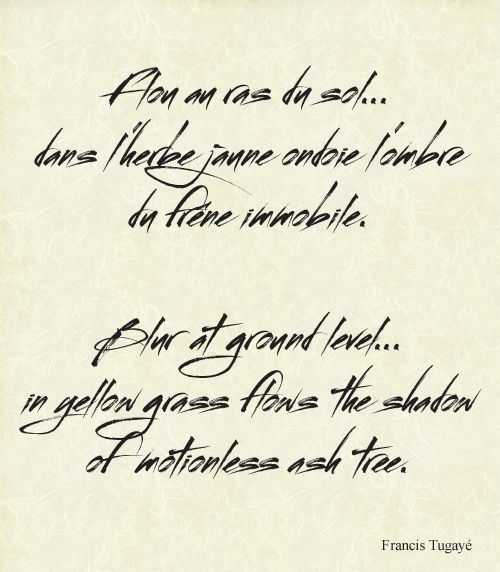 Flou au ras du sol...
dans l'herbe jaune ondoie l'ombre
du frêne immobile.
Blur at ground level...
in yellow grass flows the shadow
of motionless ash tree.
Francis Tugayé